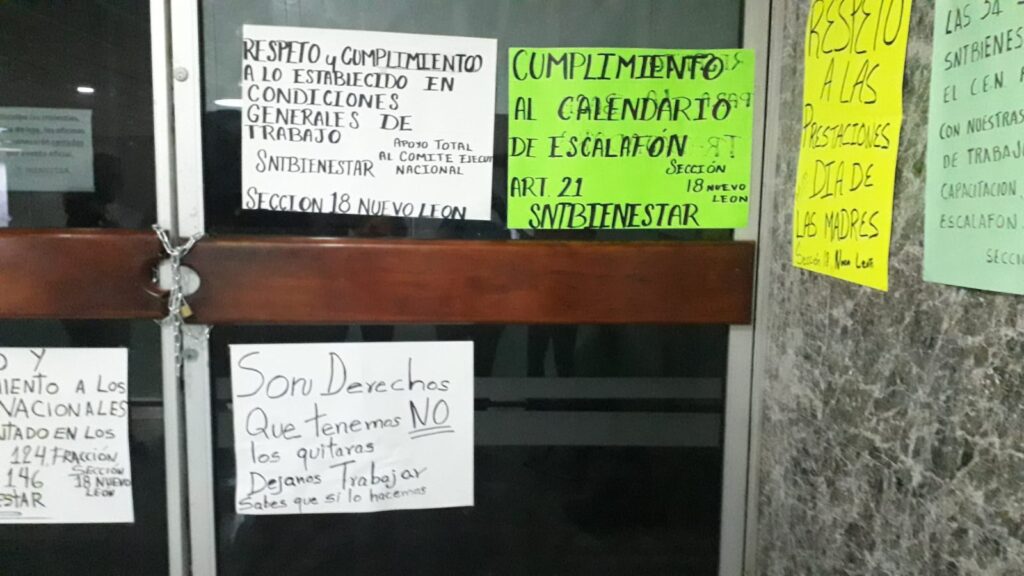 RESPETO y CUMPLIMIENTO
A LO ESTABLECIDO EN
CONDICIONES
GENERALES DE
TRABAJO
APOYO TOTAL
AL COMITE EJECUT
NACIONAL
SNTBIENESTAR
SECCION 18 NUEVO LEON
CUMPLIMIENTO
AL CALENDARIO
DE ESCALAFÓN
SECCIÓN
18 NUEVO
LEON
ART. 21
SNTBIENESTAR
RESPETO
A LAS
PRESTACIONES
DIA DE
LAS MADRES
Sección 18, Nuevo León
LAS 34
SNTBIENES
EL C.E.N. A
CON NUESTRAS
DE TRABAJ
CAPACITACION,
ESCALAFON
SECCI
O Y
MIENTO A LOS
NACIONALES
NTADO EN LOS
124, FRACCIÓN
146
SECCIÓN
18 NUEVO
LEÓN
ESTAR
Son Derechos
Que tenemos NO
los quitaras
Dejanos Trabajar
Sabes que si lo hacemos